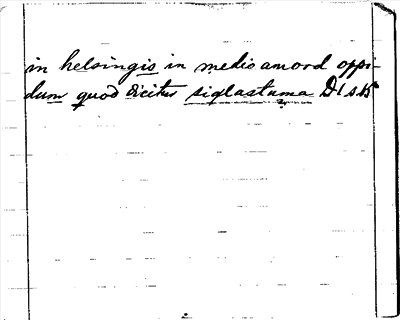 in helsingis in medio amord oppi-
dum quod dicitur siglastuma D l s. 15